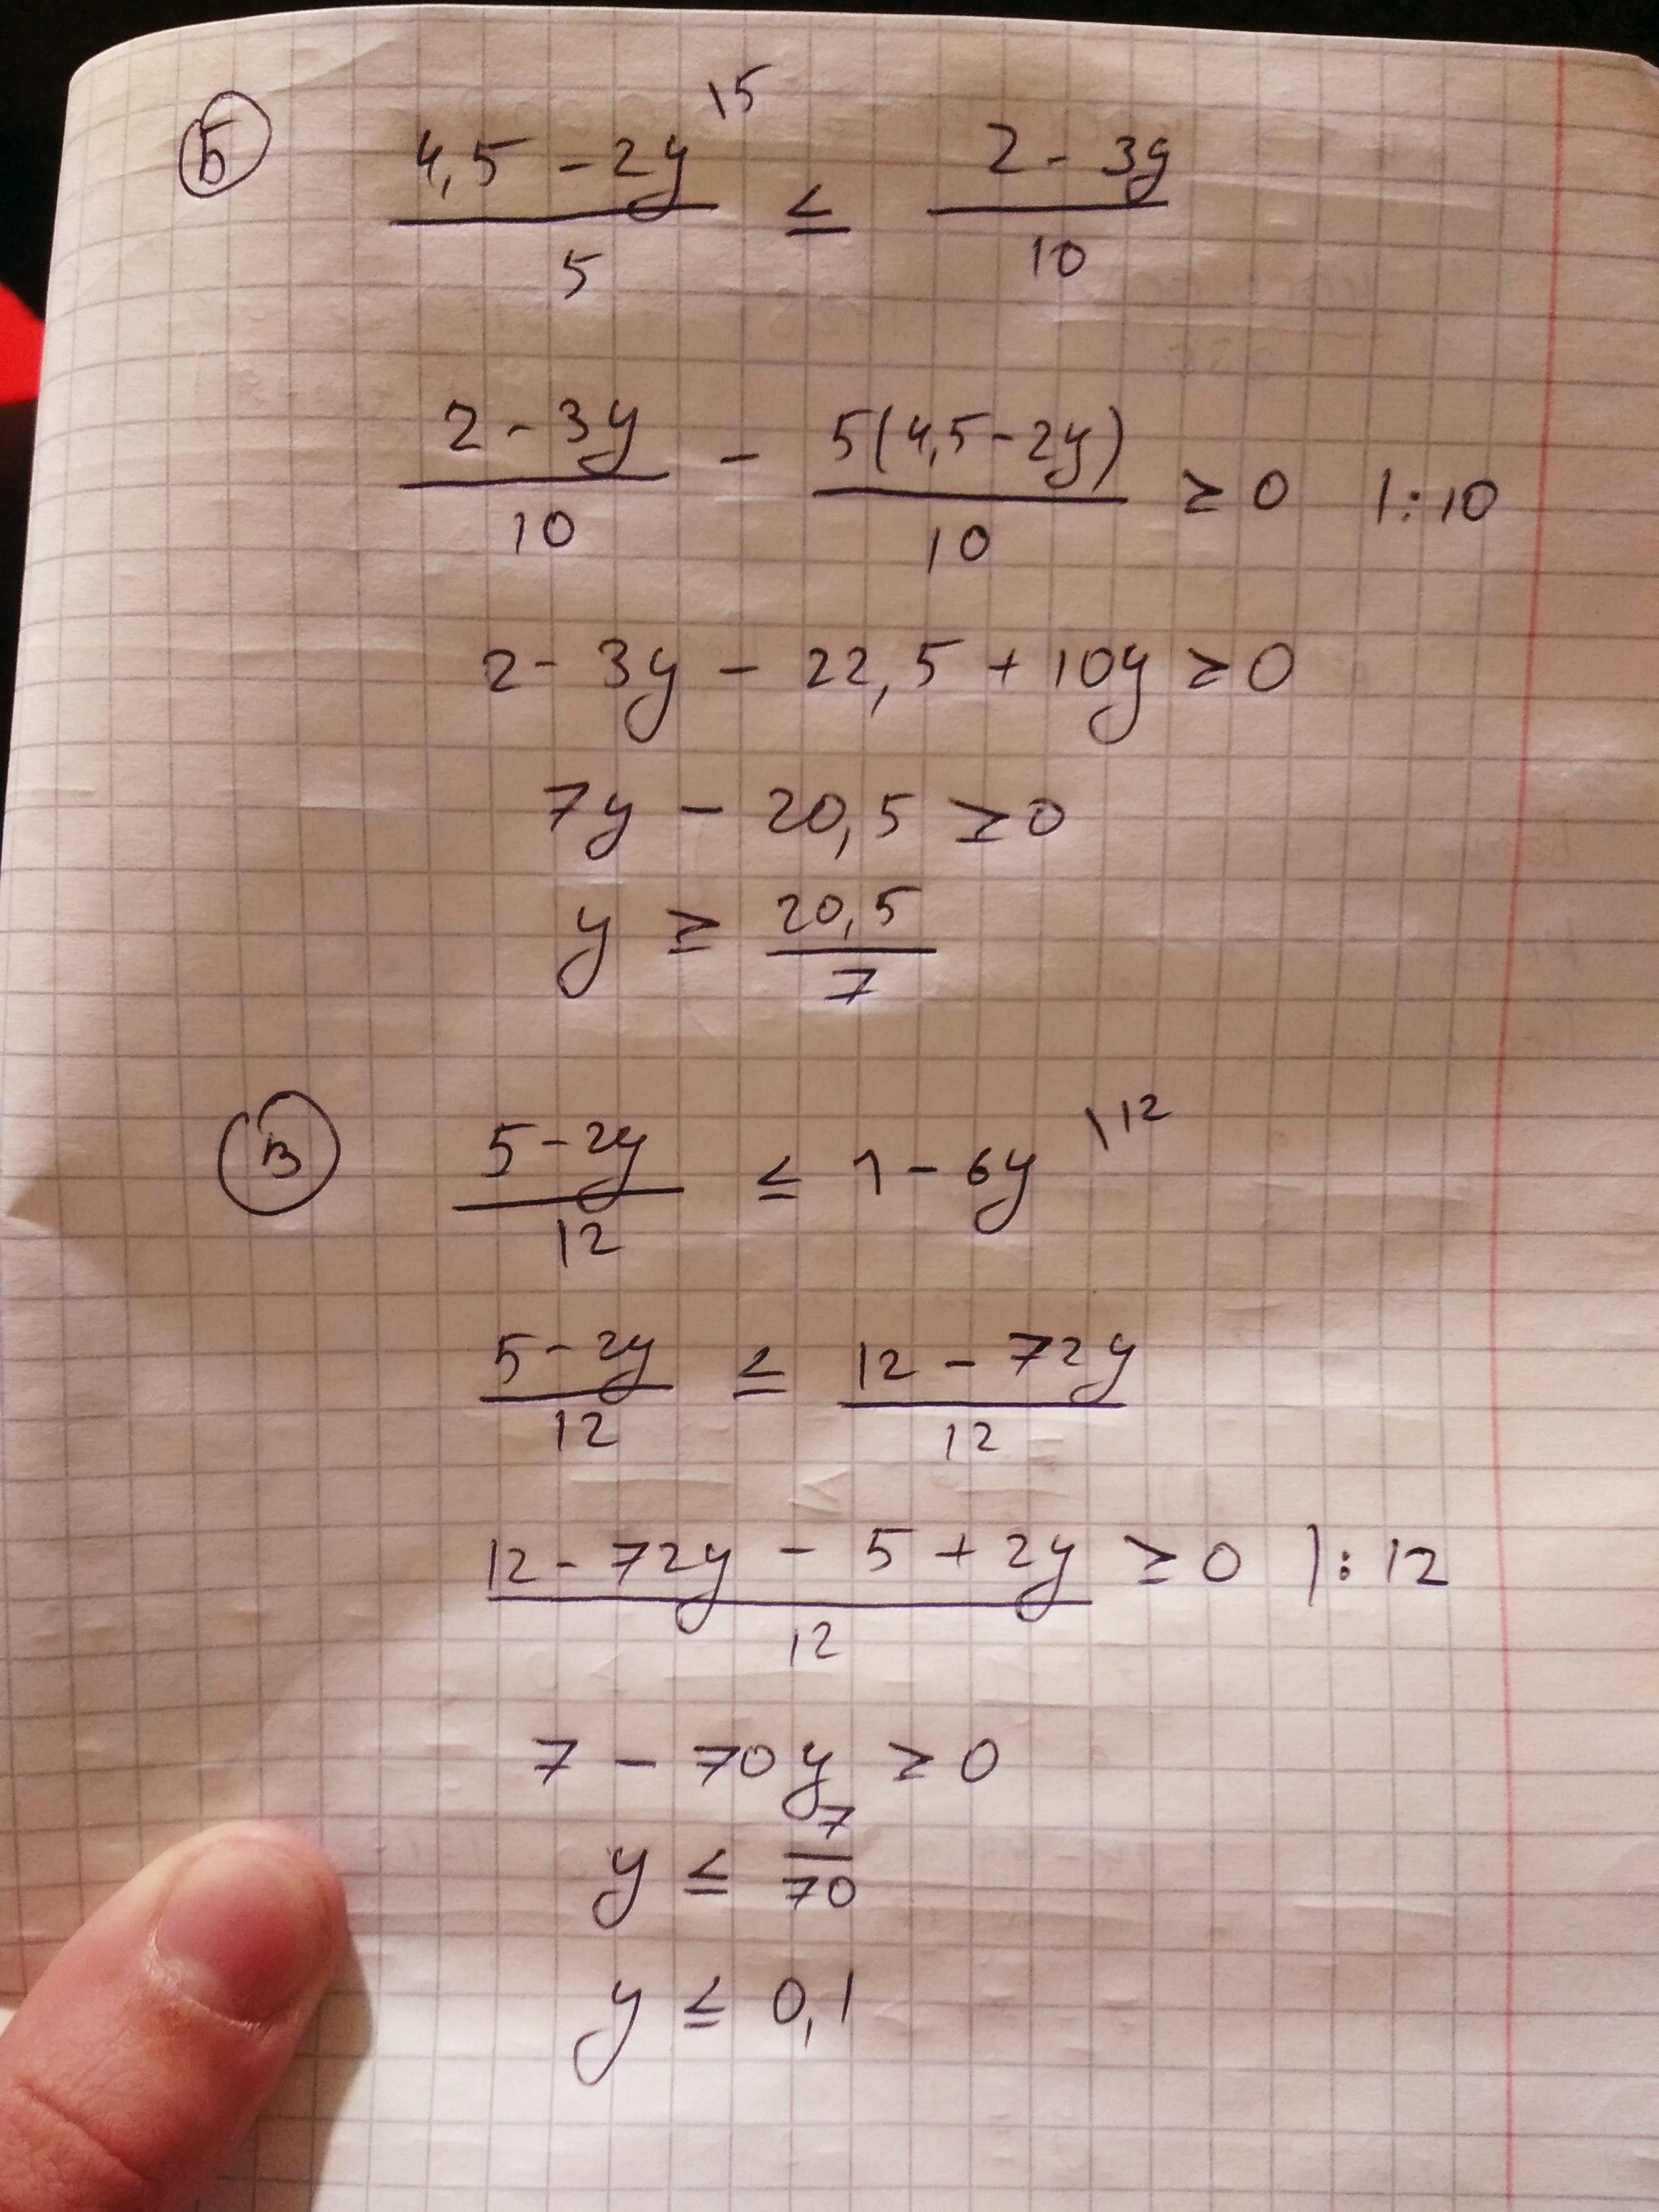 б) (4,5 - 2y)/5 \5 ≤ (2 - 3y)/10
(2 - 3y)/10 - 5(4,5 - 2y)/10 ≥ 0 |: 10
2 - 3y - 22,5 + 10y ≥ 0
7y - 20,5 ≥ 0
y ≥ 20,5/7
в) (5 - 2y)/12 ≤ 1 - 6y \12
(5 - 2y)/12 ≤ (12 - 72y)/12
(12 - 72y - 5 + 2y)/12 ≥ 0 |: 12
7 - 70y ≥ 0
y ≤ 7/70
y ≤ 0,1